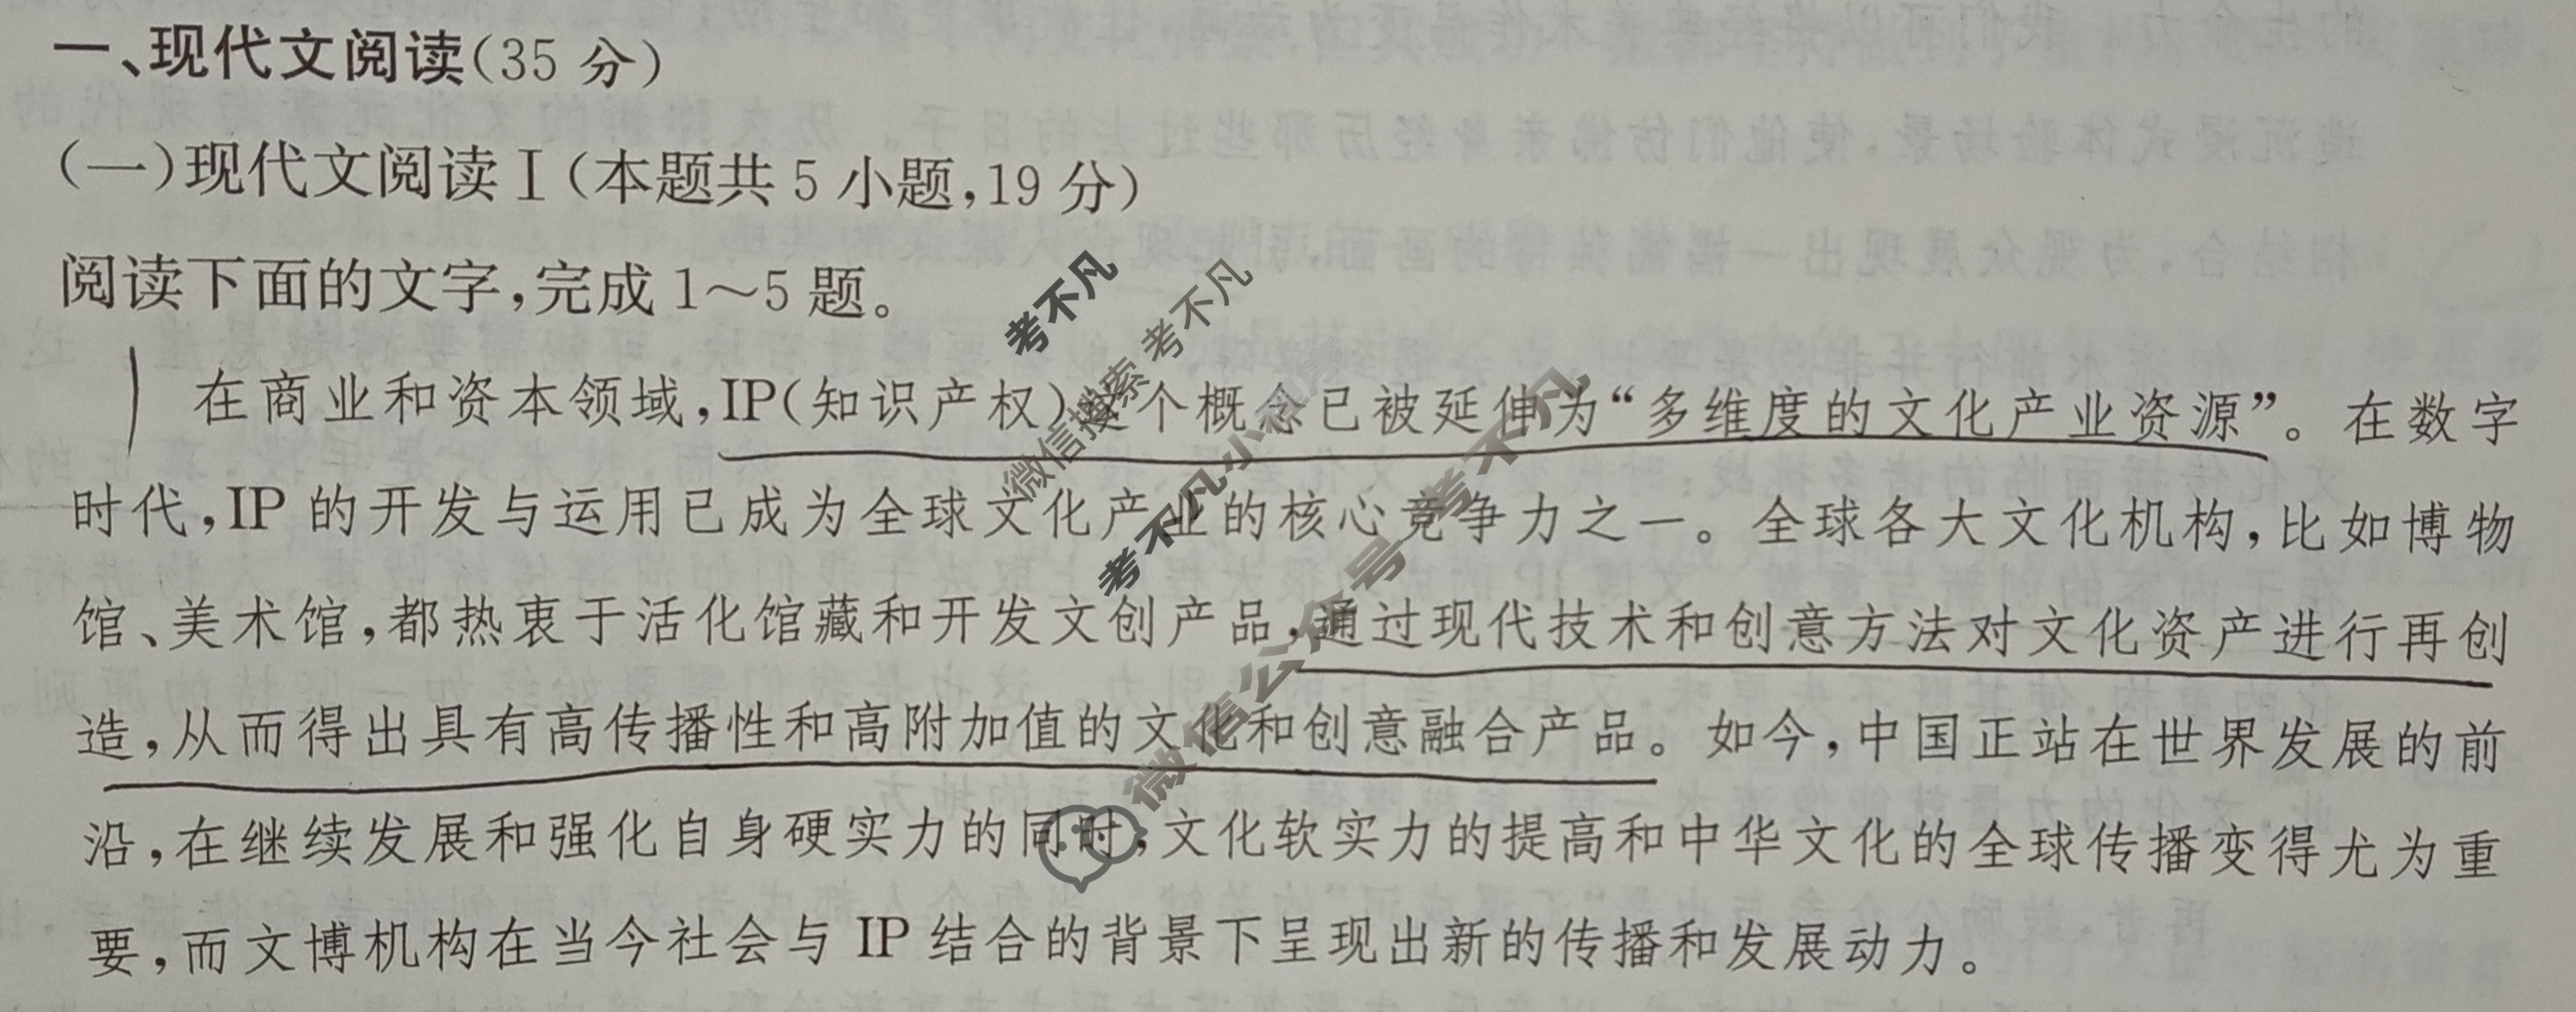 一、现代文阅读(35 分)
(一)现代文阅读Ⅰ(本题共 5 小题,19 分)
阅读下面的文字,完成 1～5 题。
在商业和资本领域,IP(知识产权)这个概念已被延伸为“多维度的文化产业资源”。在数字
时代,IP 的开发与运用已成为全球文化产业的核心竞争力之一。全球各大文化机构,比如博物
馆、美术馆,都热衷于活化馆藏和开发文创产品,通过现代技术和创意方法对文化资产进行再创
造,从而得出具有高传播性和高附加值的文化和创意融合产品。如今,中国正站在世界发展的前
沿,在继续发展和强化自身硬实力的同时,文化软实力的提高和中华文化的全球传播变得尤为重
要,而文博机构在当今社会与 IP 结合的背景下呈现出新的传播和发展动力。
考不凡
微信搜索 考不凡
考不凡小程序
微信公众号 考不凡